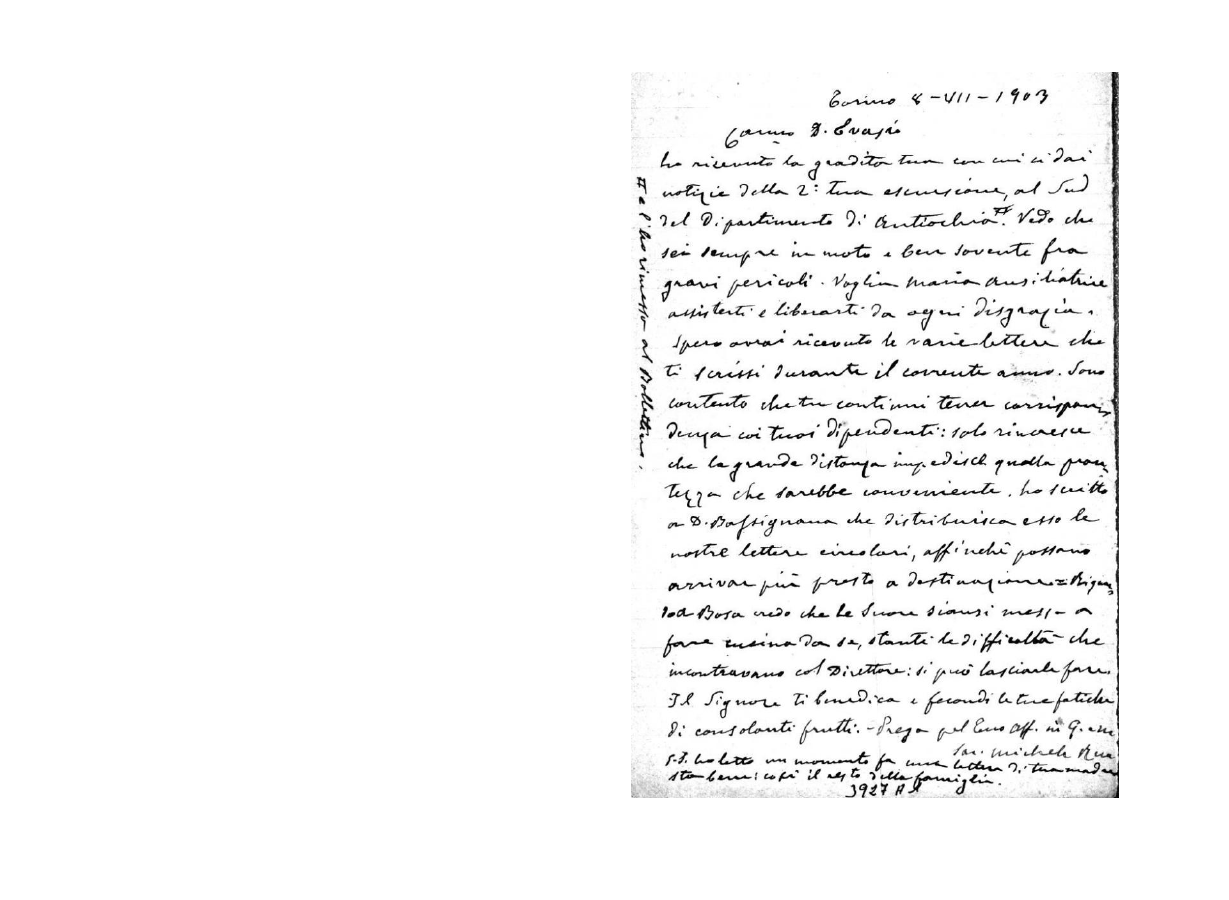 Torino 8-VII-1903
Carmo D. Evasio
ho ricevuto la gradita tua con cui ci dai
notizie della 2ª tua escursione, al Sud
del Dipartimento di Antiochia #. Vedo che
sei sempre in moto e ben sovente fra
gravi pericoli. Voglia Maria Ausiliatrice
assisterti e liberarti da ogni disgrazia.
Spero avrai ricevuto le varie lettere che
ti scrissi durante il corrente anno. Sono
contento che tu continui tener corrispon-
denza coi tuoi dipendenti: solo rincresce
che la grande distanza impedisce quella pron-
tezza che sarebbe conveniente. ho scritto
a D. Bassignana che distribuisca esso le
nostre lettere circolari, affinchè possano
arrivar più presto a destinazione = Riguar-
do a Bosa credo che le Suore siansi messe a
fare cucina da se, stante le difficoltà che
incontravano col Direttore: si può lasciarle fare.
Il Signore ti benedica e fecondi le tue fatiche
di consolanti frutti. - Prega pel tuo aff. in G. e M.
Sac. Michele Rua
P.S. ho letto un momento fa una lettera di tua madre
sta bene: così il resto della famiglia.
3927
# e l'ho rimesso al Bollettino.